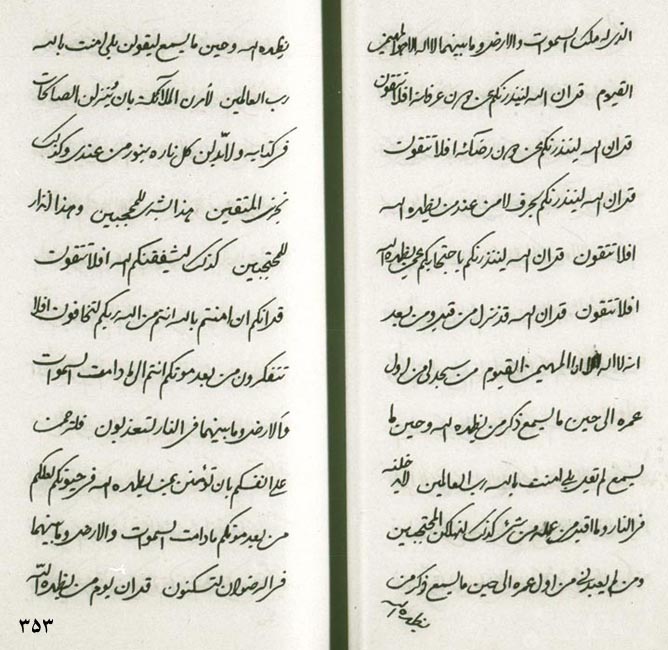 الذي له ملك السموات والارض وما بينهما لا اله الا هو المهيمن
القيوم قد ان الله لينذرنكم عن دون عرفانه افلا تتقون
قد ان الله لينذرنكم عن دون رضائه افلا تتقون
قد ان الله لينذرنكم بحرف لا من عند من يظهره الله
افلا تتقون قد ان الله لينذرنكم باحتجابكم عمن يظهره الله
افلا تتقون قد ان الله قد نزل من قبل ومن بعد
انه لا اله الا انا المهيمن القيوم من سجد لي من اول
عمره الى حين ما يسمع ذكر من يظهره الله وحين ما
يسمع لم يقل بلى امنت بالله رب العالمين لادخلنه
في النار وما اقبل من عمله من شئ كذلك لنهلكن المحتجبين
ومن لم يعبدني من اول عمره الى حين ما يسمع ذكر من
يظهره الله
يظهره الله وحين ما يسمع ليقولن بلى امنت بالله
رب العالمين لأمرن الملائكة بان ينزلن الصالحات
في كتابه ولابدلن كل ناره بنور من عندي وكذلك
نجزي المتقين هذا لبشرى للمحبين وهذا انذار
للمحتجبين كذلك ليشفقنكم الله افلا تتقون
قد انكم ان امنتم بالله انتم من الله ربكم لتخافون افلا
تتفكرون من بعد موتكم انتم الى ما دامت السموات
والارض وما بينهما في النار لتعذبون فلترحمن
على انفسكم بان تؤمنن بمن يظهره الله في حيوتكم لعلكم
من بعد موتكم ما دامت السموات والارض وما بينهما
في الرضوان لتسكنون قد ان يوم من يظهره الله
٣٥٣